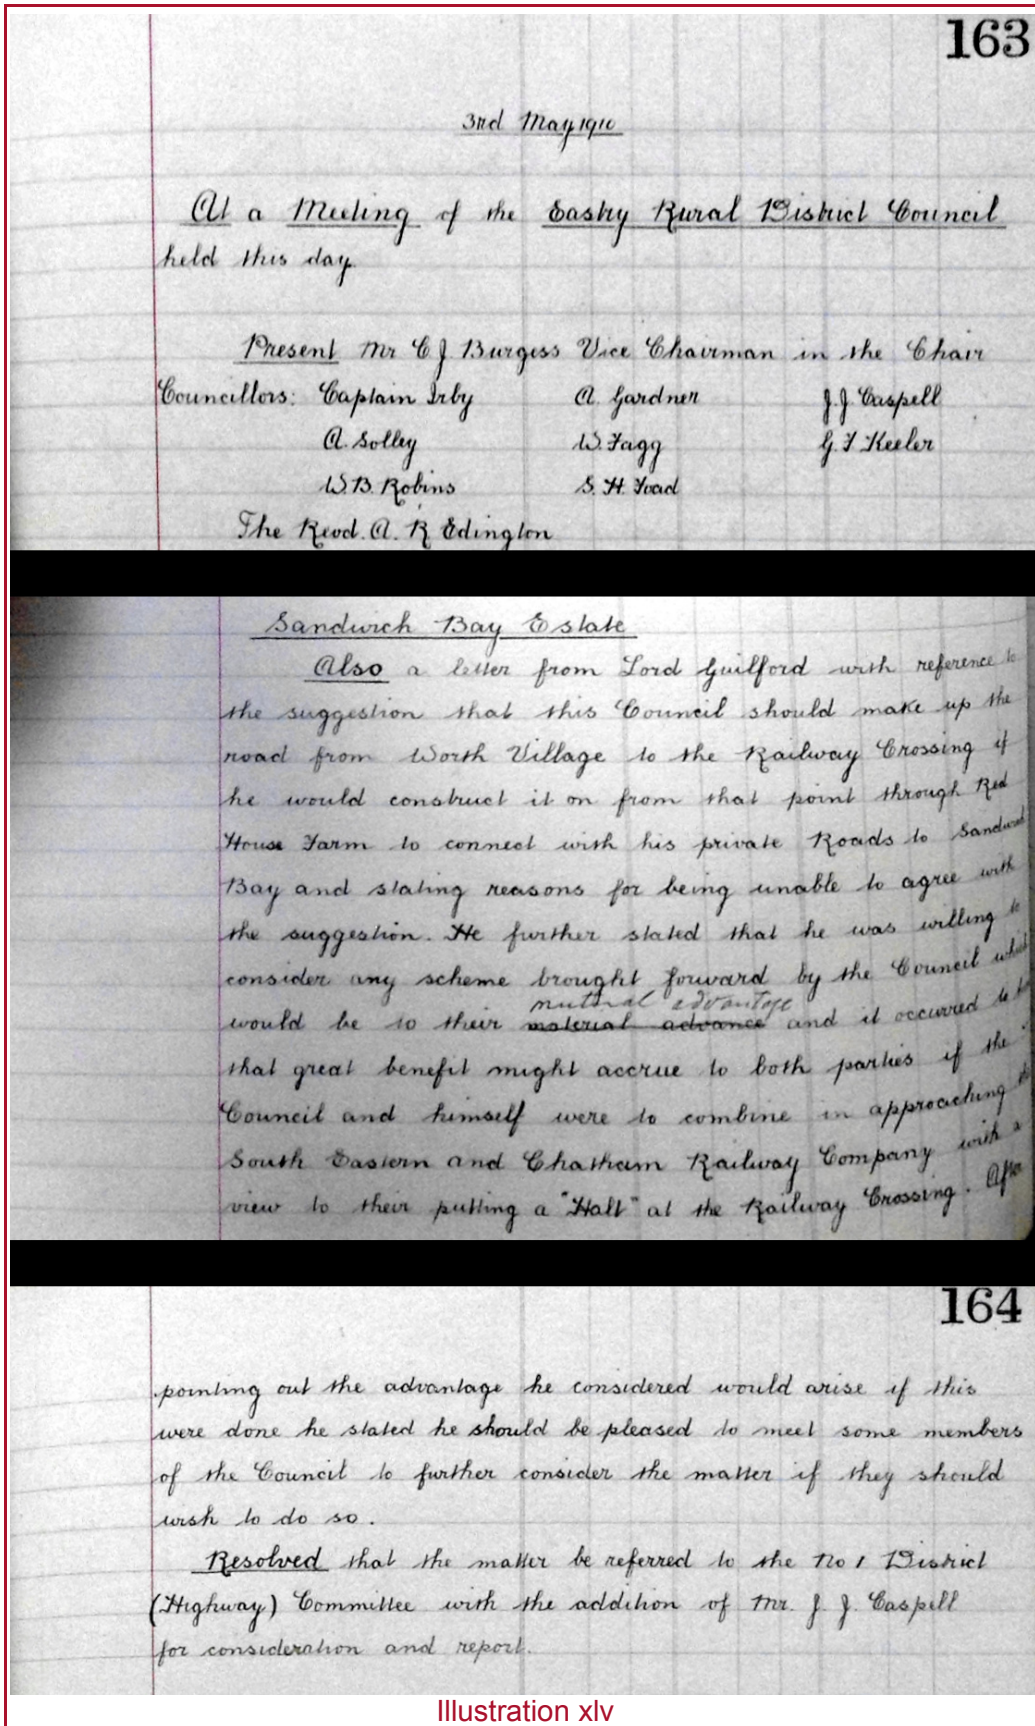 163
3rd May 1910
At a Meeting of the Eastry Rural District Council
held this day.
Present Mr C J. Burgess Vice Chairman in the Chair
Councillors: Captain Irby A. Gardner J. J. Caspell
A. Solley W. Fagg G. F Keeler
W. B. Robins S. H. Foad
The Revd. A. R Edington
Sandwich Bay Estate
Also a letter from Lord Guilford with reference to
the suggestion that this Council should make up the
road from Worth Village to the Railway Crossing if
he would construct it on from that point through Red
House Farm to connect with his private Roads to Sandwich
Bay and stating reasons for being unable to agree with
the suggestion. He further stated that he was willing to
consider any scheme brought forward by the Council which
mutual advantage
would be to their material advance and it occurred to
that great benefit might accrue to both parties if the
Council and himself were to combine in approaching
South Eastern and Chatham Railway Company with a
view to their putting a "Halt" at the Railway Crossing. After
164
pointing out the advantage he considered would arise if this
were done he stated he should be pleased to meet some members
of the Council to further consider the matter if they should
wish to do so.
Resolved that the matter be referred to the No 1 District
(Highway) Committee with the addition of Mr. J. J. Caspell
for consideration and report.
Illustration xlv